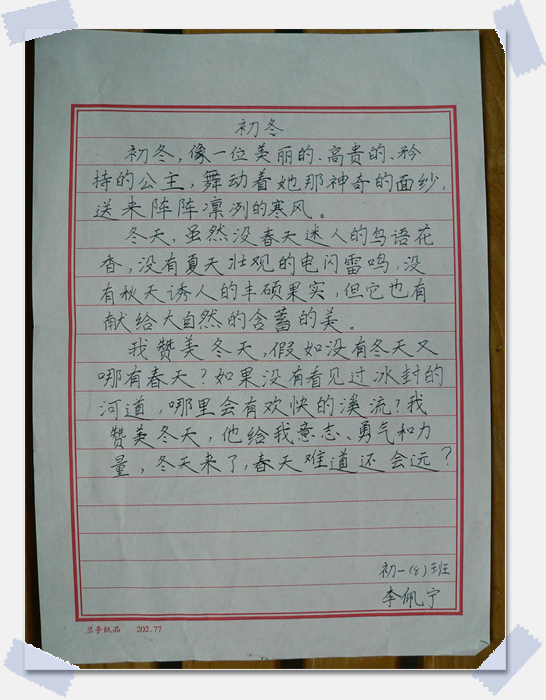 初冬
初冬,像一位美丽的、高贵的、矜
持的公主,舞动着她那神奇的面纱,
送来阵阵凛冽的寒风。
冬天,虽然没春天迷人的鸟语花
香,没有夏天壮观的电闪雷鸣,没
有秋天诱人的丰硕果实,但它也有
献给大自然的含蓄的美。
我赞美冬天,假如没有冬天又
哪有春天?如果没有看见过冰封的
河道,哪里会有欢快的溪流?我
赞美冬天,他给我意志、勇气和力
量,冬天来了,春天难道还会远?
初一(8)班
李佩宁
兰亭纸品 202.77